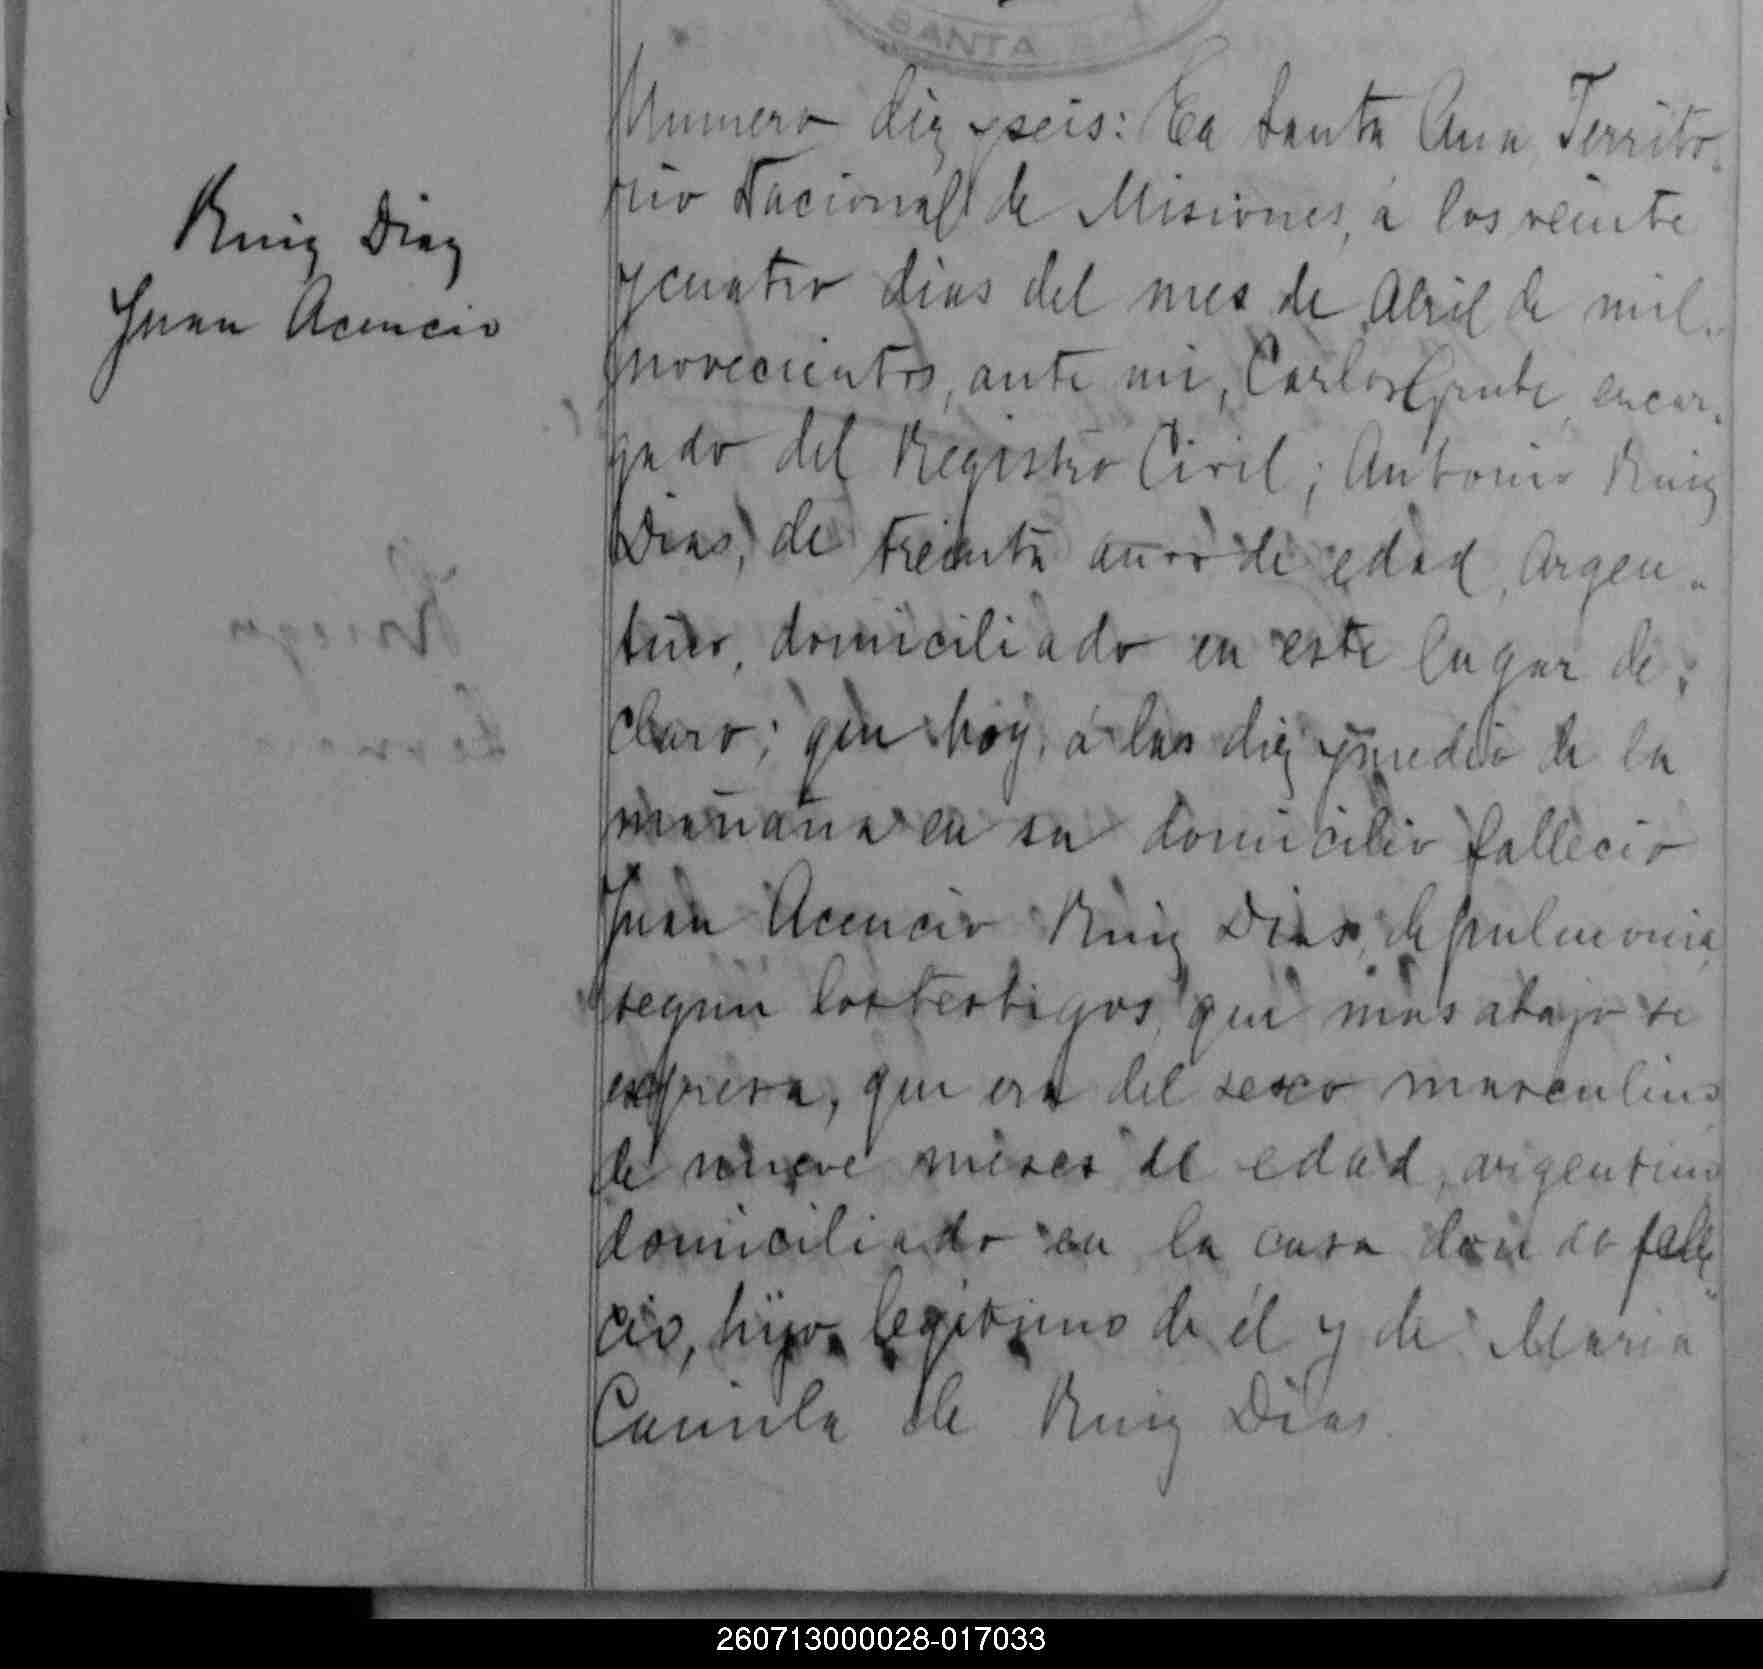 SANTA
Numero diez y seis: En Santa Ana, Territo-
rio Nacional de Misiones, á los veinte
Ruiz Diaz
y cuatro dias del mes de Abril de mil
Juan Acencio
novecientos, ante mi, Carlos encar-
gado del Registro Civil; Antonio Ruiz
Dias, de treinta años de edad, argen-
tino, domiciliado en este lugar de-
claro; que hoy, á las diez y media de la
mañana en su domicilio fallecio
Juan Acencio Ruiz Dias, de pulmonia
segun los testigos que mas abajo se
expresa, que era del sexo masculino
de nueve meses de edad, argentino
domiciliado en la casa donde falle-
cio, hijo legitimo de él y de Maria
Camila de Ruiz Dias
260713000028-017033